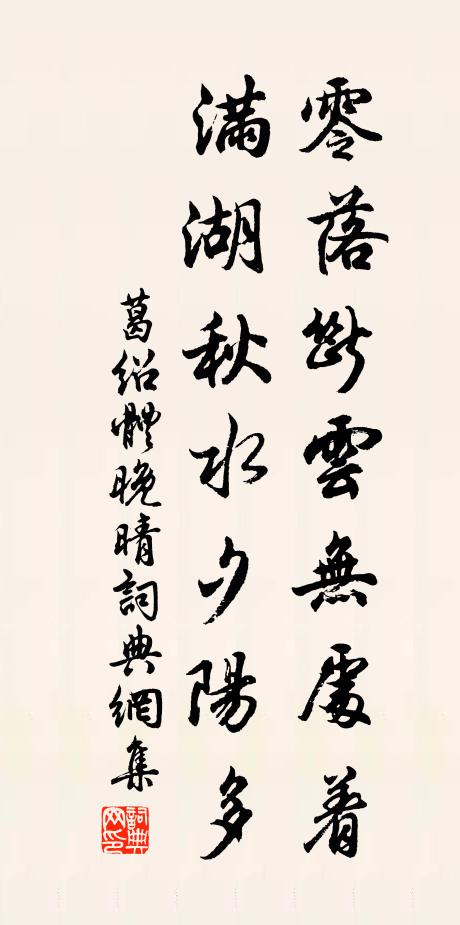 零落斷雲無處着
滿湖秋水夕陽多
葛紹體晚晴詞典網集
詞典網印